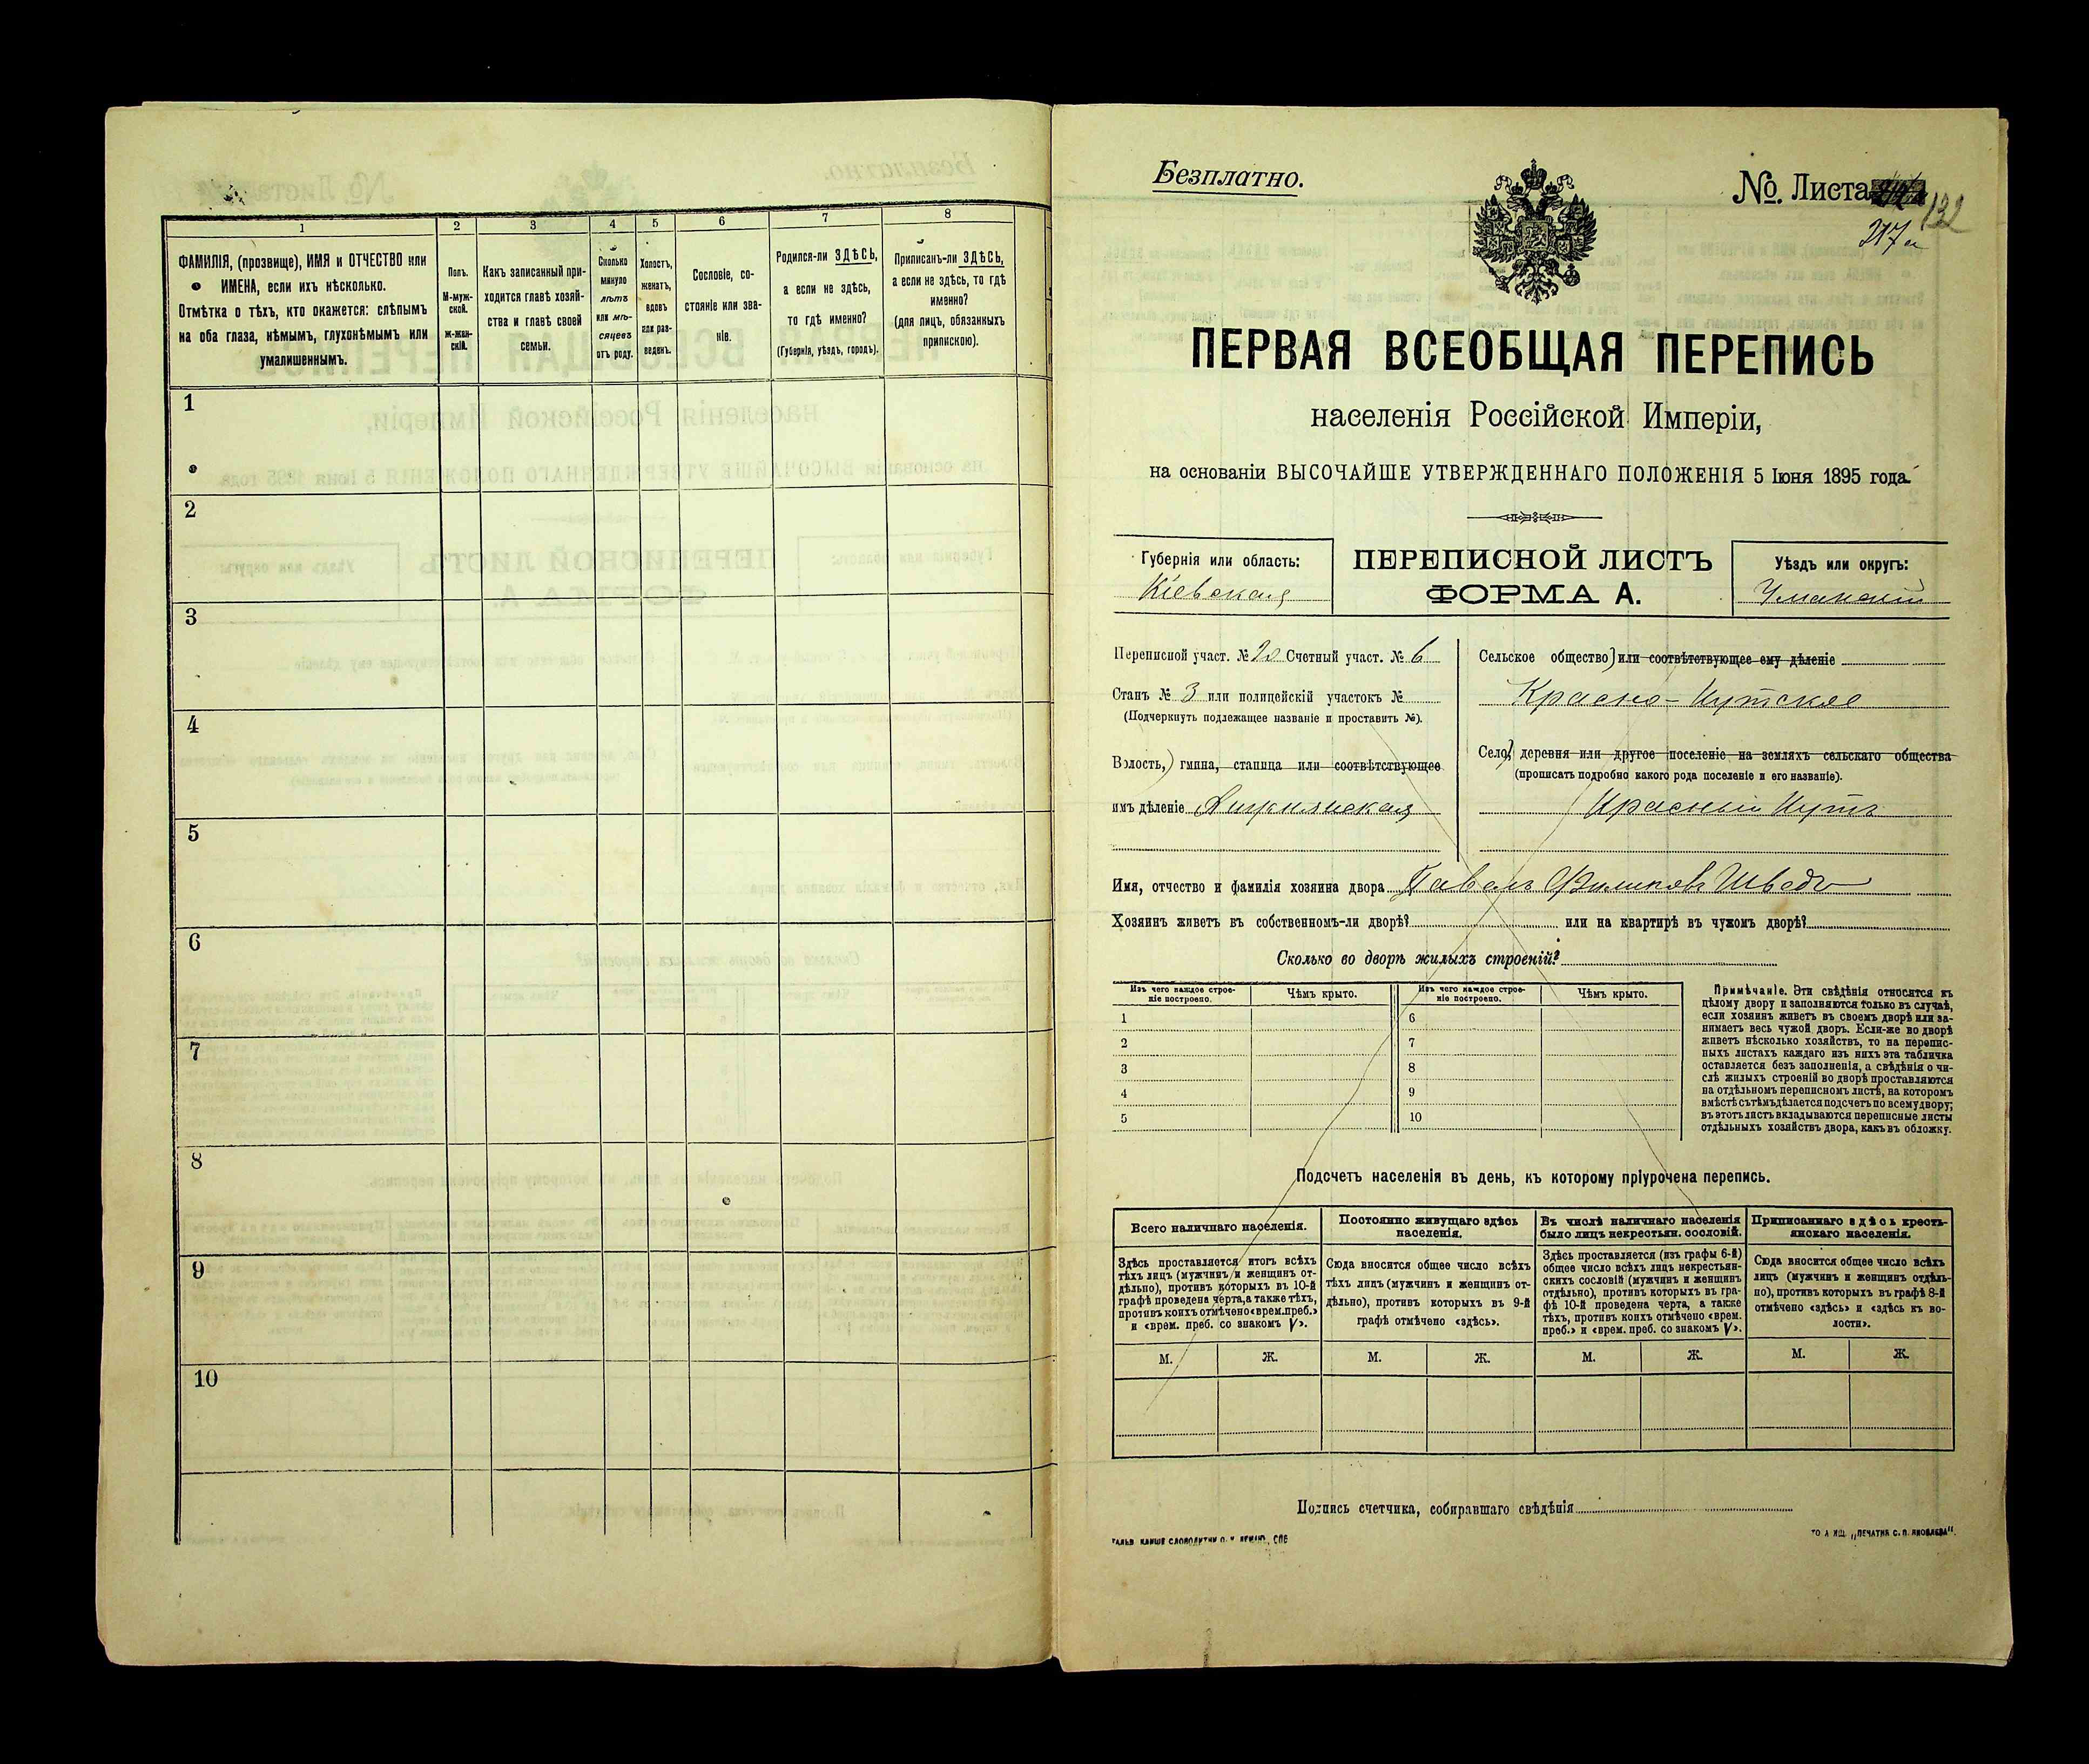 1 2 3 4 5 6 7 8
ФАМИЛІЯ, (прозвище), ИМЯ и ОТЧЕСТВО или
ИМЕНА, если ихъ нѣсколько.
Отмѣтка о тѣхъ, кто окажется: слѣпымъ
на оба глаза, нѣмымъ, глухонѣмымъ или
умалишеннымъ.
Полъ.
М-муж-
ской.
ж-жен-
скій.
Какъ записанный при-
ходится главѣ хозяй-
ства и главѣ своей
семьи.
Сколько
минуло
лѣтъ
или мѣ-
сяцевъ
отъ роду.
Холостъ,
женатъ,
вдовъ
или раз-
веденъ.
Сословіе, со-
стояніе или зва-
ніе.
Родился-ли ЗДѢСЬ,
а если не здѣсь,
то гдѣ именно?
(Губернія, уѣздъ, городъ).
Приписанъ-ли ЗДѢСЬ,
а если не здѣсь, то гдѣ
именно?
(для лицъ, обязанныхъ
припискою).
1
2
3
4
5
6
7
8
9
10
Безплатно.
№. Листа
132
217а
ПЕРВАЯ ВСЕОБЩАЯ ПЕРЕПИСЬ
населенія Россійской Имперіи,
на основаніи ВЫСОЧАЙШЕ УТВЕРЖДЕННАГО ПОЛОЖЕНІЯ 5 Іюня 1895 года.
Губернія или область:
Кіевская
ПЕРЕПИСНОЙ ЛИСТЪ
ФОРМА А.
Уѣздъ или округъ:
Уманскій
Переписной участ. № 20 Счетный участ. № 6
Станъ № 3 или полицейскій участокъ №
(Подчеркнуть подлежащее названіе и проставить №).
Волость,) гмина, станица или соотвѣтствующее
имъ дѣленіе
Сельское общество) или соотвѣтствующее ему дѣленіе
Красно-Кутское
Село,) деревня или другое поселеніе на земляхъ сельскаго общества
(прописать подробно какого рода поселеніе и его названіе).
Красный Кутъ
Имя, отчество и фамилія хозяина двора Павелъ Филиповъ Шведъ
Хозяинъ живетъ въ собственномъ-ли дворѣ? или на квартирѣ въ чужомъ дворѣ?
Сколько во дворѣ жилыхъ строеній?
Изъ чего каждое строе-
ніе построено.
Чѣмъ крыто.
Изъ чего каждое строе-
ніе построено.
Чѣмъ крыто.
1 6
2 7
3 8
4 9
5 10
Примѣчаніе. Эти свѣдѣнія относятся къ
цѣлому двору и заполняются только въ случаѣ,
если хозяинъ живетъ въ своемъ дворѣ или за-
нимаетъ весь чужой дворъ. Если-же во дворѣ
живетъ нѣсколько хозяйствъ, то на перепис-
ныхъ листахъ каждаго изъ нихъ эта табличка
оставляется безъ заполненія, а свѣдѣнія о чи-
слѣ жилыхъ строеній во дворѣ проставляются
на отдѣльномъ переписномъ листѣ, на которомъ
вмѣстѣ съ тѣмъ дѣлается подсчетъ по всему двору;
въ этотъ листъ вкладываются переписные листы
отдѣльныхъ хозяйствъ двора, какъ въ обложку.
Подсчетъ населенія въ день, къ которому пріурочена перепись.
Всего наличнаго населенія.
Здѣсь проставляется итогъ всѣхъ
тѣхъ лицъ (мужчинъ и женщинъ от-
дѣльно), противъ которыхъ въ 10-й
графѣ проведена черта, а также тѣхъ,
противъ коихъ отмѣчено «врем. преб.»
и «врем. преб. со знакомъ V».
Постоянно живущаго здѣсь
населенія.
Сюда вносится общее число всѣхъ
тѣхъ лицъ (мужчинъ и женщинъ от-
дѣльно), противъ которыхъ въ 9-й
графѣ отмѣчено «здѣсь».
Въ числѣ наличнаго населенія
было лицъ некрестьян. сословій.
Здѣсь проставляется (изъ графы 6-й)
общее число всѣхъ лицъ некрестьян-
скихъ сословій (мужчинъ и женщинъ
отдѣльно), противъ которыхъ въ гра-
фѣ 10-й проведена черта, а также
тѣхъ, противъ коихъ отмѣчено «врем.
преб.» и «врем. преб. со знакомъ V».
Приписаннаго здѣсь кресть-
янскаго населенія.
Сюда вносится общее число всѣхъ
лицъ (мужчинъ и женщинъ отдѣль-
но), противъ которыхъ въ графѣ 8-й
отмѣчено «здѣсь» и «здѣсь къ во-
лости».
М. Ж. М. Ж. М. Ж. М. Ж.
Подпись счетчика, собиравшаго свѣдѣнія
„ПЕЧАТНЯ С. П. ЯКОВЛЕВА“.